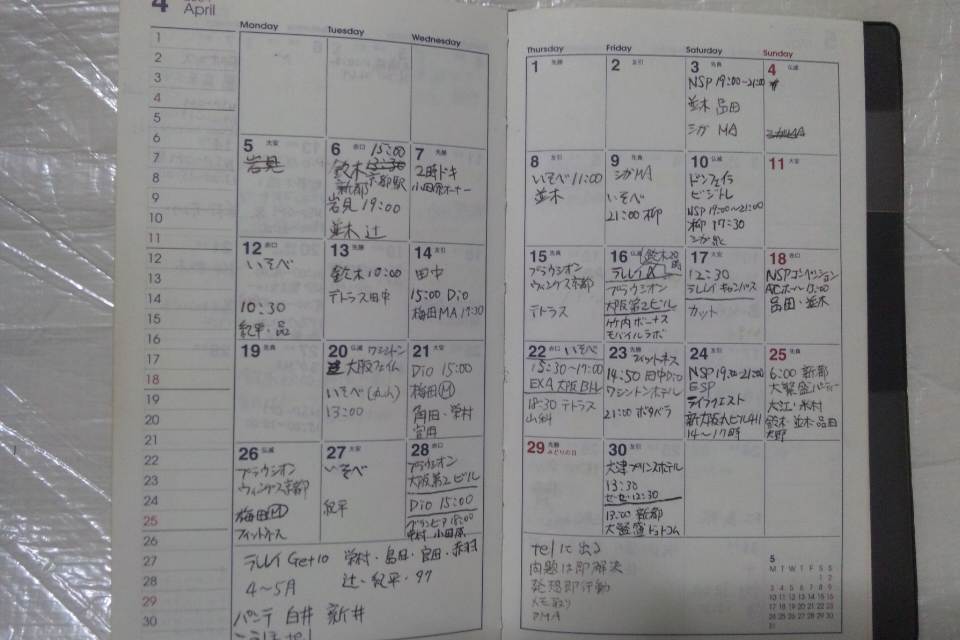 4
April
Monday
Tuesday
Wednesday
Thursday
Friday
Saturday
Sunday
1
2
3
4
5
6
7
8
9
10
11
12
13
14
15
16
17
18
19
20
21
22
23
24
25
26
27
28
29
30
1 先勝
2 友引
3 先負
NSP 19:00~21:00
並木 品田
シガ MA
4 仏滅
5 大安
岩見
6 赤口 15:00
鈴木 13:30
新都 京都駅
岩見 19:00
並木 辻
7 先勝
2時ドキ
小田原オーナー
8 友引
いそべ 11:00
並木
9 先負
シガMA
いそべ
21:00 柳
10 仏滅
ビジトレ
NSP 19:00~21:00
柳 17:30
11 大安
12 赤口
いそべ
10:30
紀平・品
13 先勝
鈴木 10:00
テトラス田中
14 友引
田中
15:00 Dio
梅田MA 19:30
15 先負
ブラウシオン
ウィングス京都
テトラス
16 仏滅
テレレイ
ブラウシオン
大阪第2ビル
竹内 ボーナス
モバイルラボ
17 大安
12:30
テレレイ キャンパス
カット
18 赤口
NSPコンベンション
ATCホール 13:00
品田・並木
19 先負
20 仏滅 ワシントン
大阪フェイム
いそべ
13:00
21 大安
Dio 15:00
梅田M
角田・栄村
官田
22 赤口 いそべ
15:30~17:00
EXA 大阪BLD
18:30 テトラス
山科
23 先勝 フィットネス
14:50 田中Dio
ワシントンホテル
21:00 ポタバラ
24 友引
NSP 19:30~21:00
ESP
ライフクエスト
新大阪丸ビル411
14~17時
25 先負
6:00 新都
大盤盛パーティー
大江・米村
鈴木・並木 品田
26 仏滅
ブラウシオン
ウィングス京都
梅田M
フィットネス
27 大安
いそべ
紀平
28 赤口
ブラウシオン
大阪第2ビル
Dio 15:00
29 先勝
みどりの日
30 友引
大津プリンスホテル
13:30
13:00 新都
テレレイ Get10 栄村・島田・官田・赤羽
4~5月 辻・紀平・97
パンテ 白井 新井
telに出る
問題は即解決
発想即行動
メモ取り
5
M T W T F S S
1 2
3 4 5 6 7 8 9
10 11 12 13 14 15 16
17 18 19 20 21 22 23
24 25 26 27 28 29 30
31